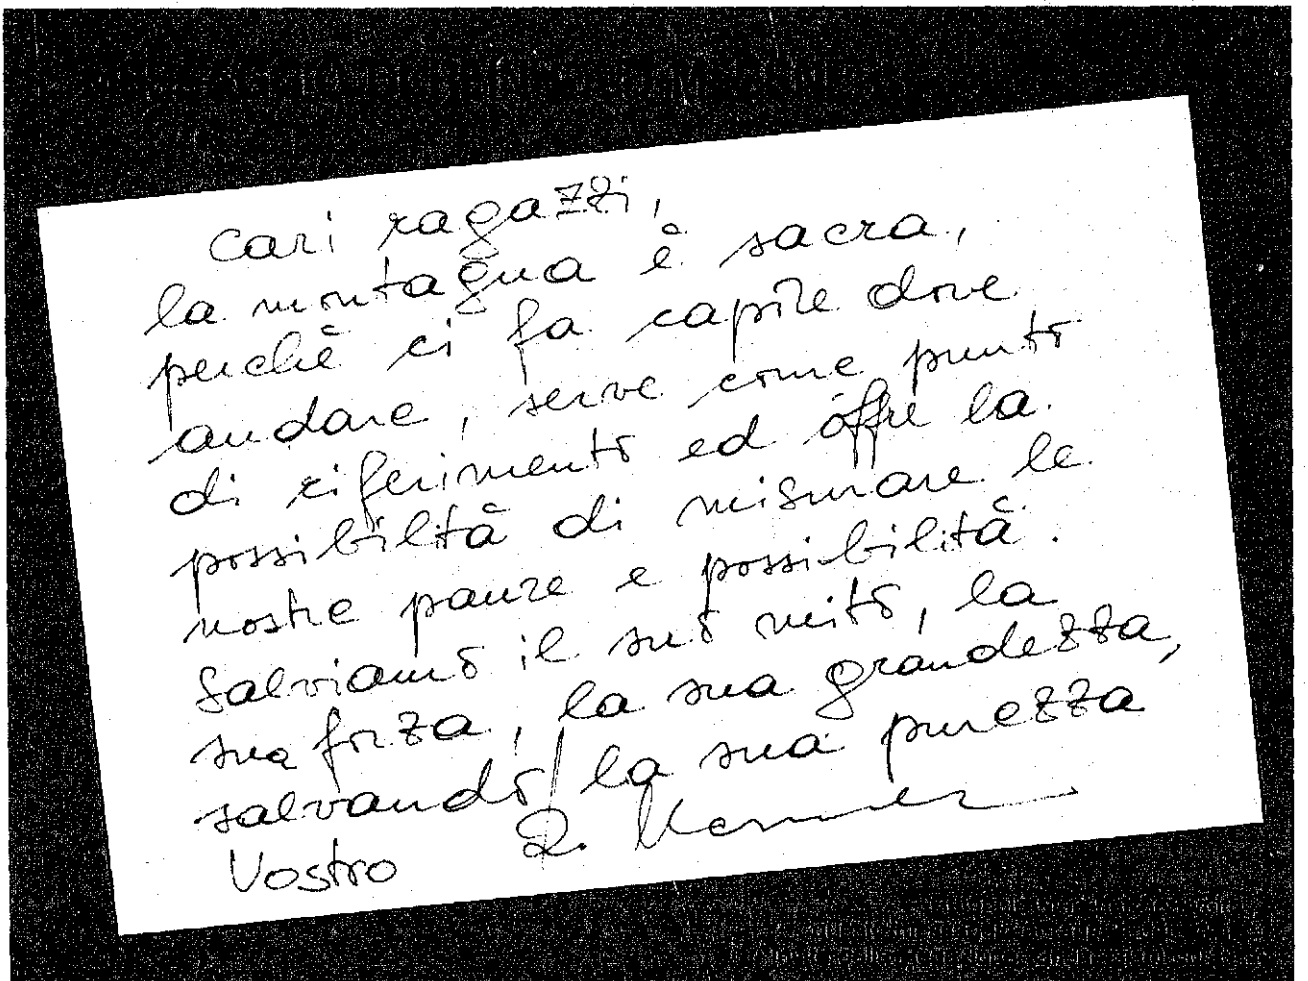 Cari ragazzi,
la montagna è sacra,
perchè ci fa capire dove
andare, serve come punto
di riferimento ed offre la
possibiltà di misurare le
nostre paure e possibilità.
Salviamo il suo mito, la
sua forza, la sua grandezza,
salvando la sua purezza
Vostro R.